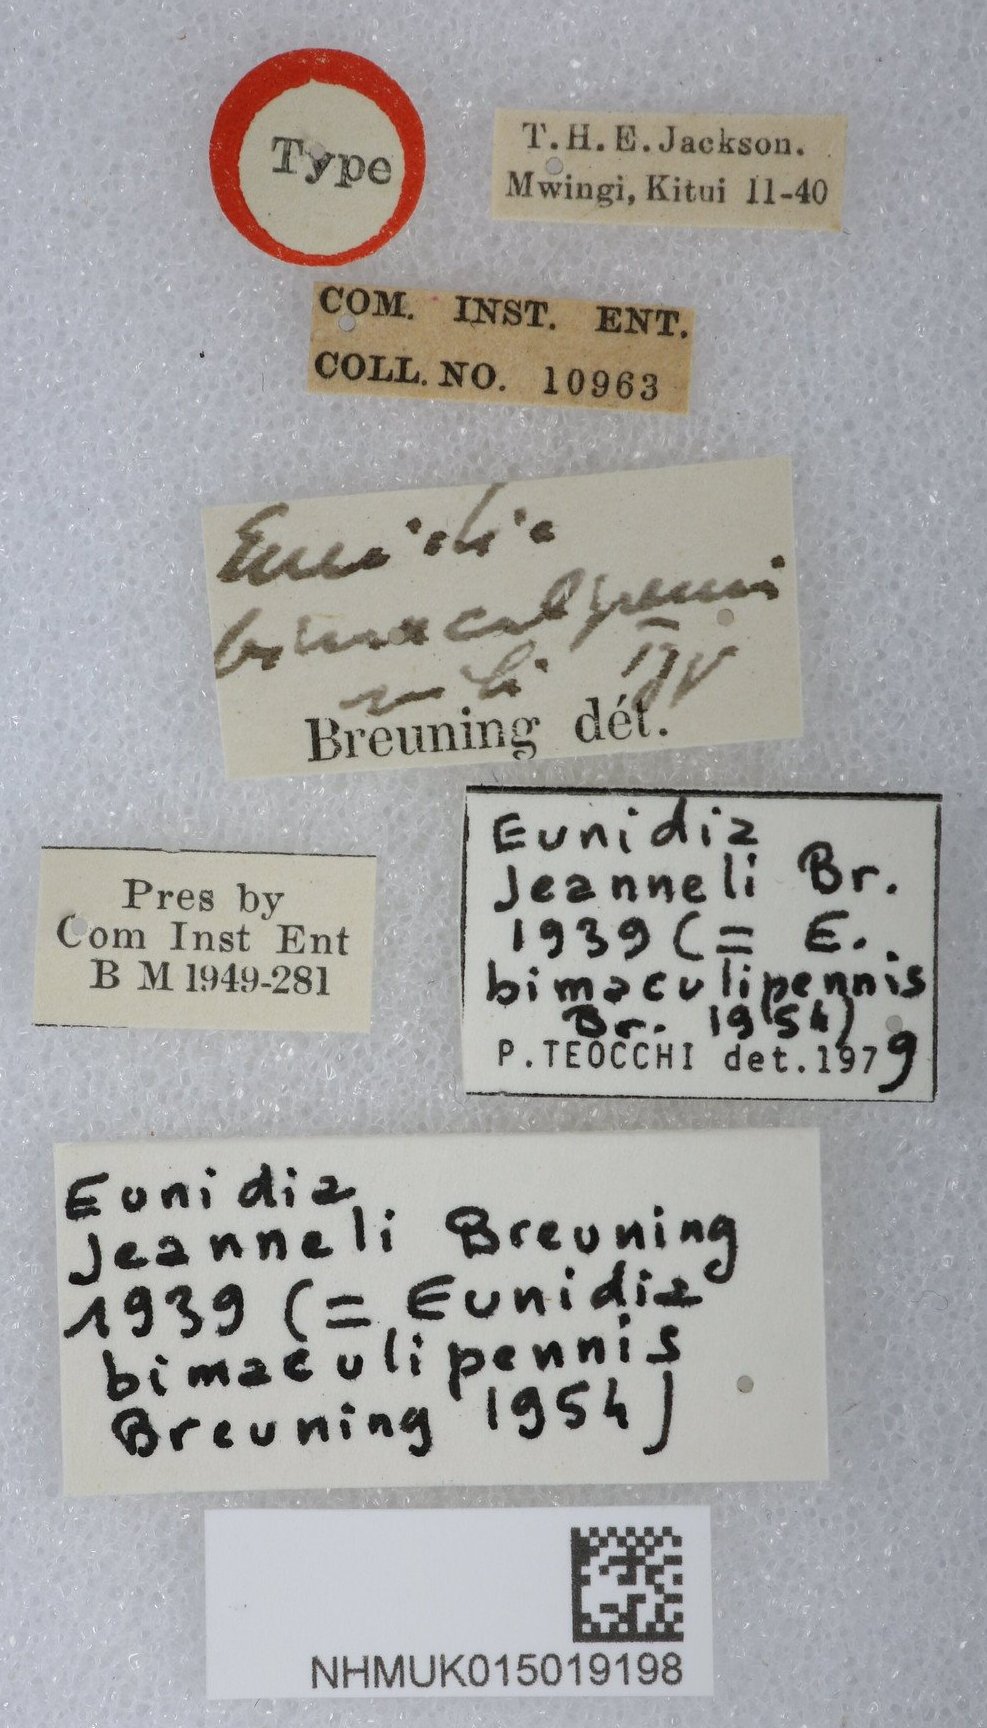 Type
T. H. E. Jackson.
Mwingi, Kitui 11-40
COM. INST. ENT.
COLL. NO. 10963
Eunidia
bimaculipennis
Breuning dét.
Pres by
Com Inst Ent
B M 1949-281
Eunidia
Jeanneli Br.
1939 (= E.
bimaculipennis
Br. 1954)
P. TEOCCHI det. 1979
Eunidia
Jeanneli Breuning
1939 (= Eunidia
bimaculipennis
Breuning 1954)
NHMUK015019198